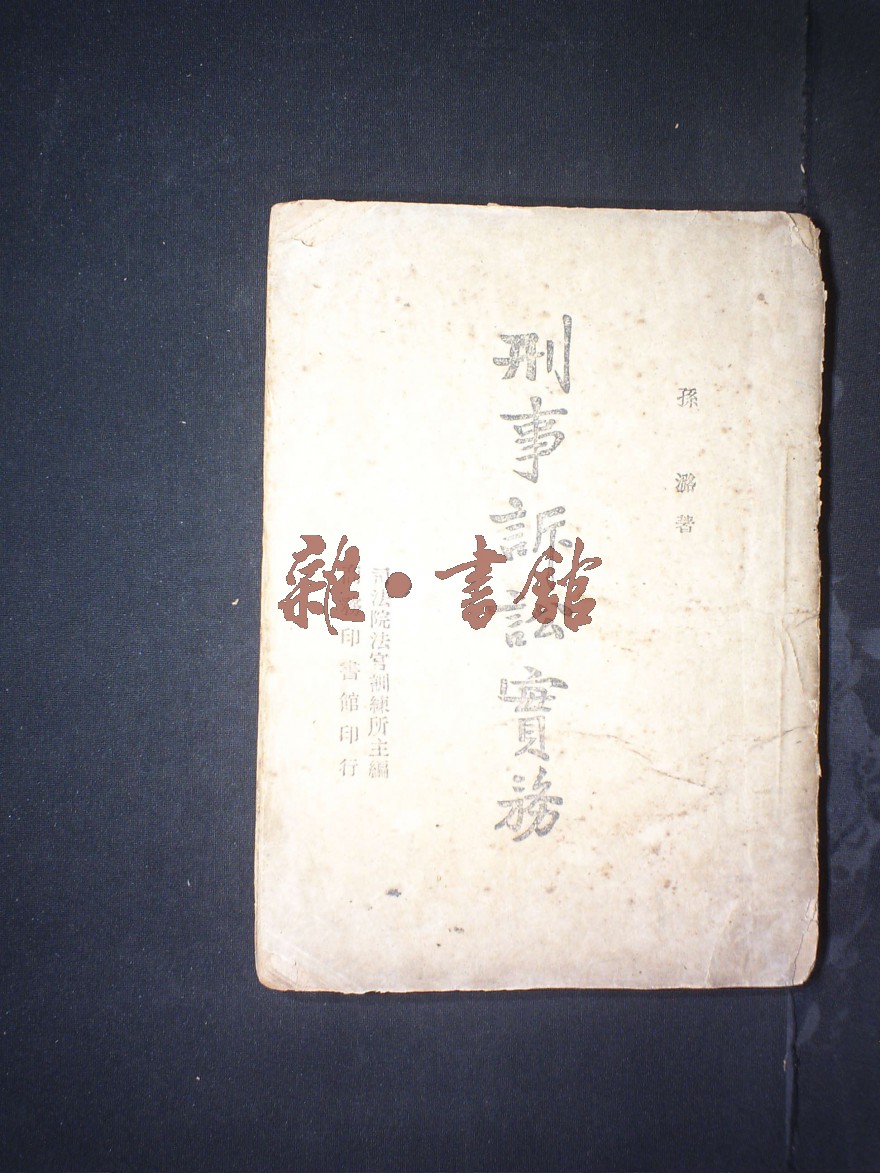 孫潞著
刑事訴訟實務
司法院法官訓練所主編
印書館印行
雜·書館